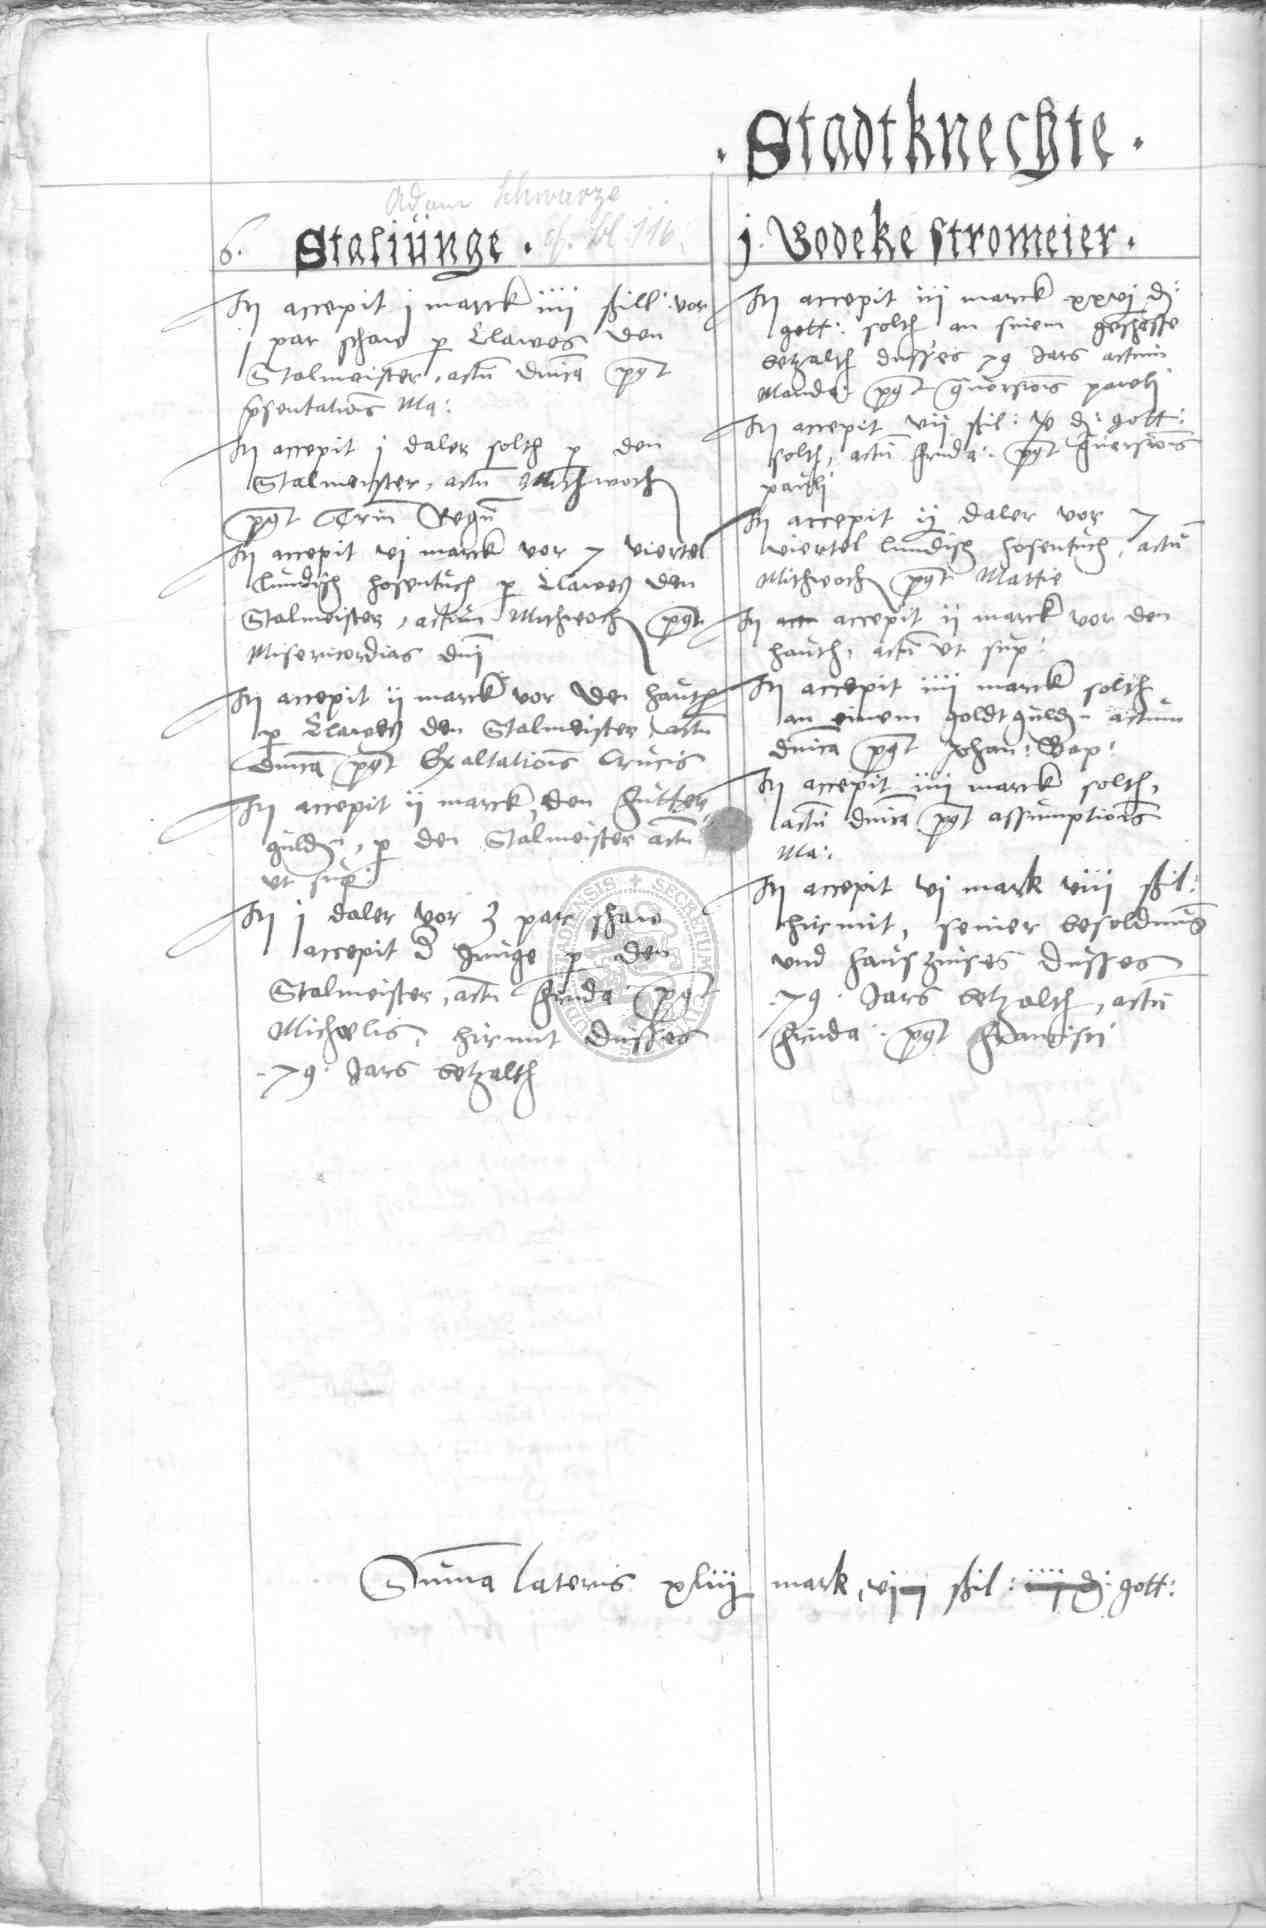 . Stadtknechte .
Adam Schwarze
cf. bl. 116.
6. Staljunge .
It accepit j marck iiii schill: vor
j par schow p Clawes den
Stalmeister, actu dnica post
psentationis Ma:
It accepit j daler solth p den
Stalmeister, actu Mithwoch
post Trin Regu
It accepit vj marck vor 7 viertel
Lundisch hosentuch p Clawes den
Stalmeister, actum Mithwoch post
Misericordias dni
It accepit ij marck vor den hauth
p Clawes den Stalmeister, actu
dnica post Exaltationis Crucis
It accepit ij marck, den futter
guld, p den Stalmeister actu
ut sup:
It j daler vor 3 par schow
accepit d Junge p den
Stalmeister, actu frida post
Michaelis, hirmit dusses
.79. Jars betzalth
j. Bodeke Stromeier .
It accepit iij marck xxvj d:
gott: solth an sinem
betzalth dusses 79 Jars actum
Manda: post Conversionis pauli
It accepit vij schil: d: gott:
solth, actu frida: post Conversionis
pauli
It accepit ij daler vor 7
viertel lundisch hosentuch, actu
Mithwoch post Mattie
It accepit ij marck vor den
hauth, actu ut sup:
It accepit iiii marck solth
an einem goldt guld: actum
dnica post Johan: Bap:
It accepit iiii marck solth,
actu dnica post assumptionis
Ma:
It accepit vj mark viii schil:
hirmit, seiner besoldung
und hauszinses dusses
.79. Jars betzalth, actu
frida: post Francisci
Suma lateris xliij mark, vj schil: d: gott: